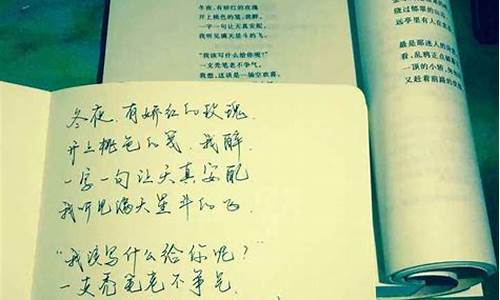 冬夜,有娇红的玫瑰
开上桃色的笺,我醉,
一字一句让天真安配,
我听见满天星斗的飞。
"我该写什么给你呢?"
一支秃笔老不争气,
我想,这该是一场空欢喜。
绕过郁翠的山
远亭里有人在
最是那迷人的
看,乱鸦正点破
一顶的小轿,
又赶着前路的
冬夜,有娇红的玫瑰.
开上桃色的笺.我醉.
一字一句让天真安配
我听见满天星斗的飞.
"我该写什么给你呢?"
一支秃笔老不争气.